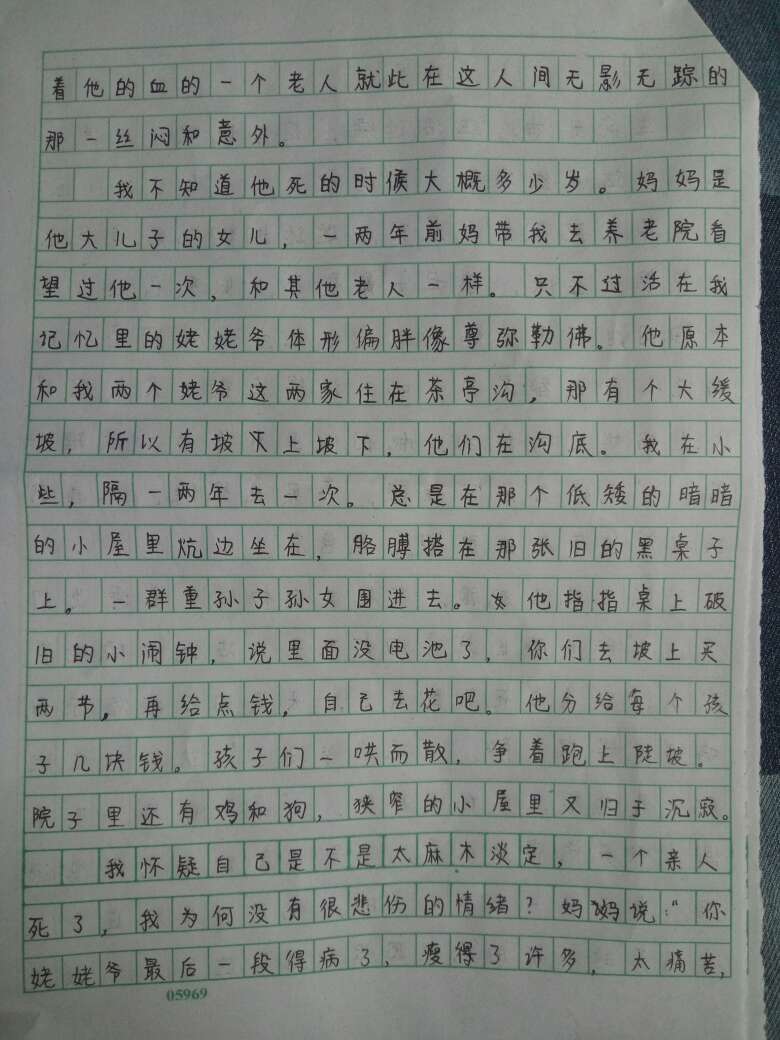 着他的血的一个老人就此在这人间无影无踪的
那一丝闷和意外。
我不知道他死的时候大概多少岁。妈妈是
他大儿子的女儿，一两年前妈带我去养老院看
望过他一次，和其他老人一样。只不过活在我
记忆里的姥姥爷体形偏胖像尊弥勒佛。他原本
和我两个姥爷这两家住在茶亭沟，那有个大缓
坡，所以有坡下上坡下，他们在沟底。我在小
些，隔一两年去一次。总是在那个低矮的暗暗
的小屋里炕边坐在，胳膊搭在那张旧的黑桌子
上。一群重孙子孙女围进去。他指指桌上破
旧的小闹钟，说里面没电池了，你们去坡上买
两节，再给点钱，自己去花吧。他分给每个孩
子几块钱。孩子们一哄而散，争着跑上陡坡。
院子里还有鸡和狗，狭窄的小屋里又归于沉寂。
我怀疑自己是不是太麻木淡定，一个亲人
死了，我为何没有很悲伤的情绪？妈妈说：“你
姥姥爷最后一段得病了，瘦得了许多，太痛苦，
05969